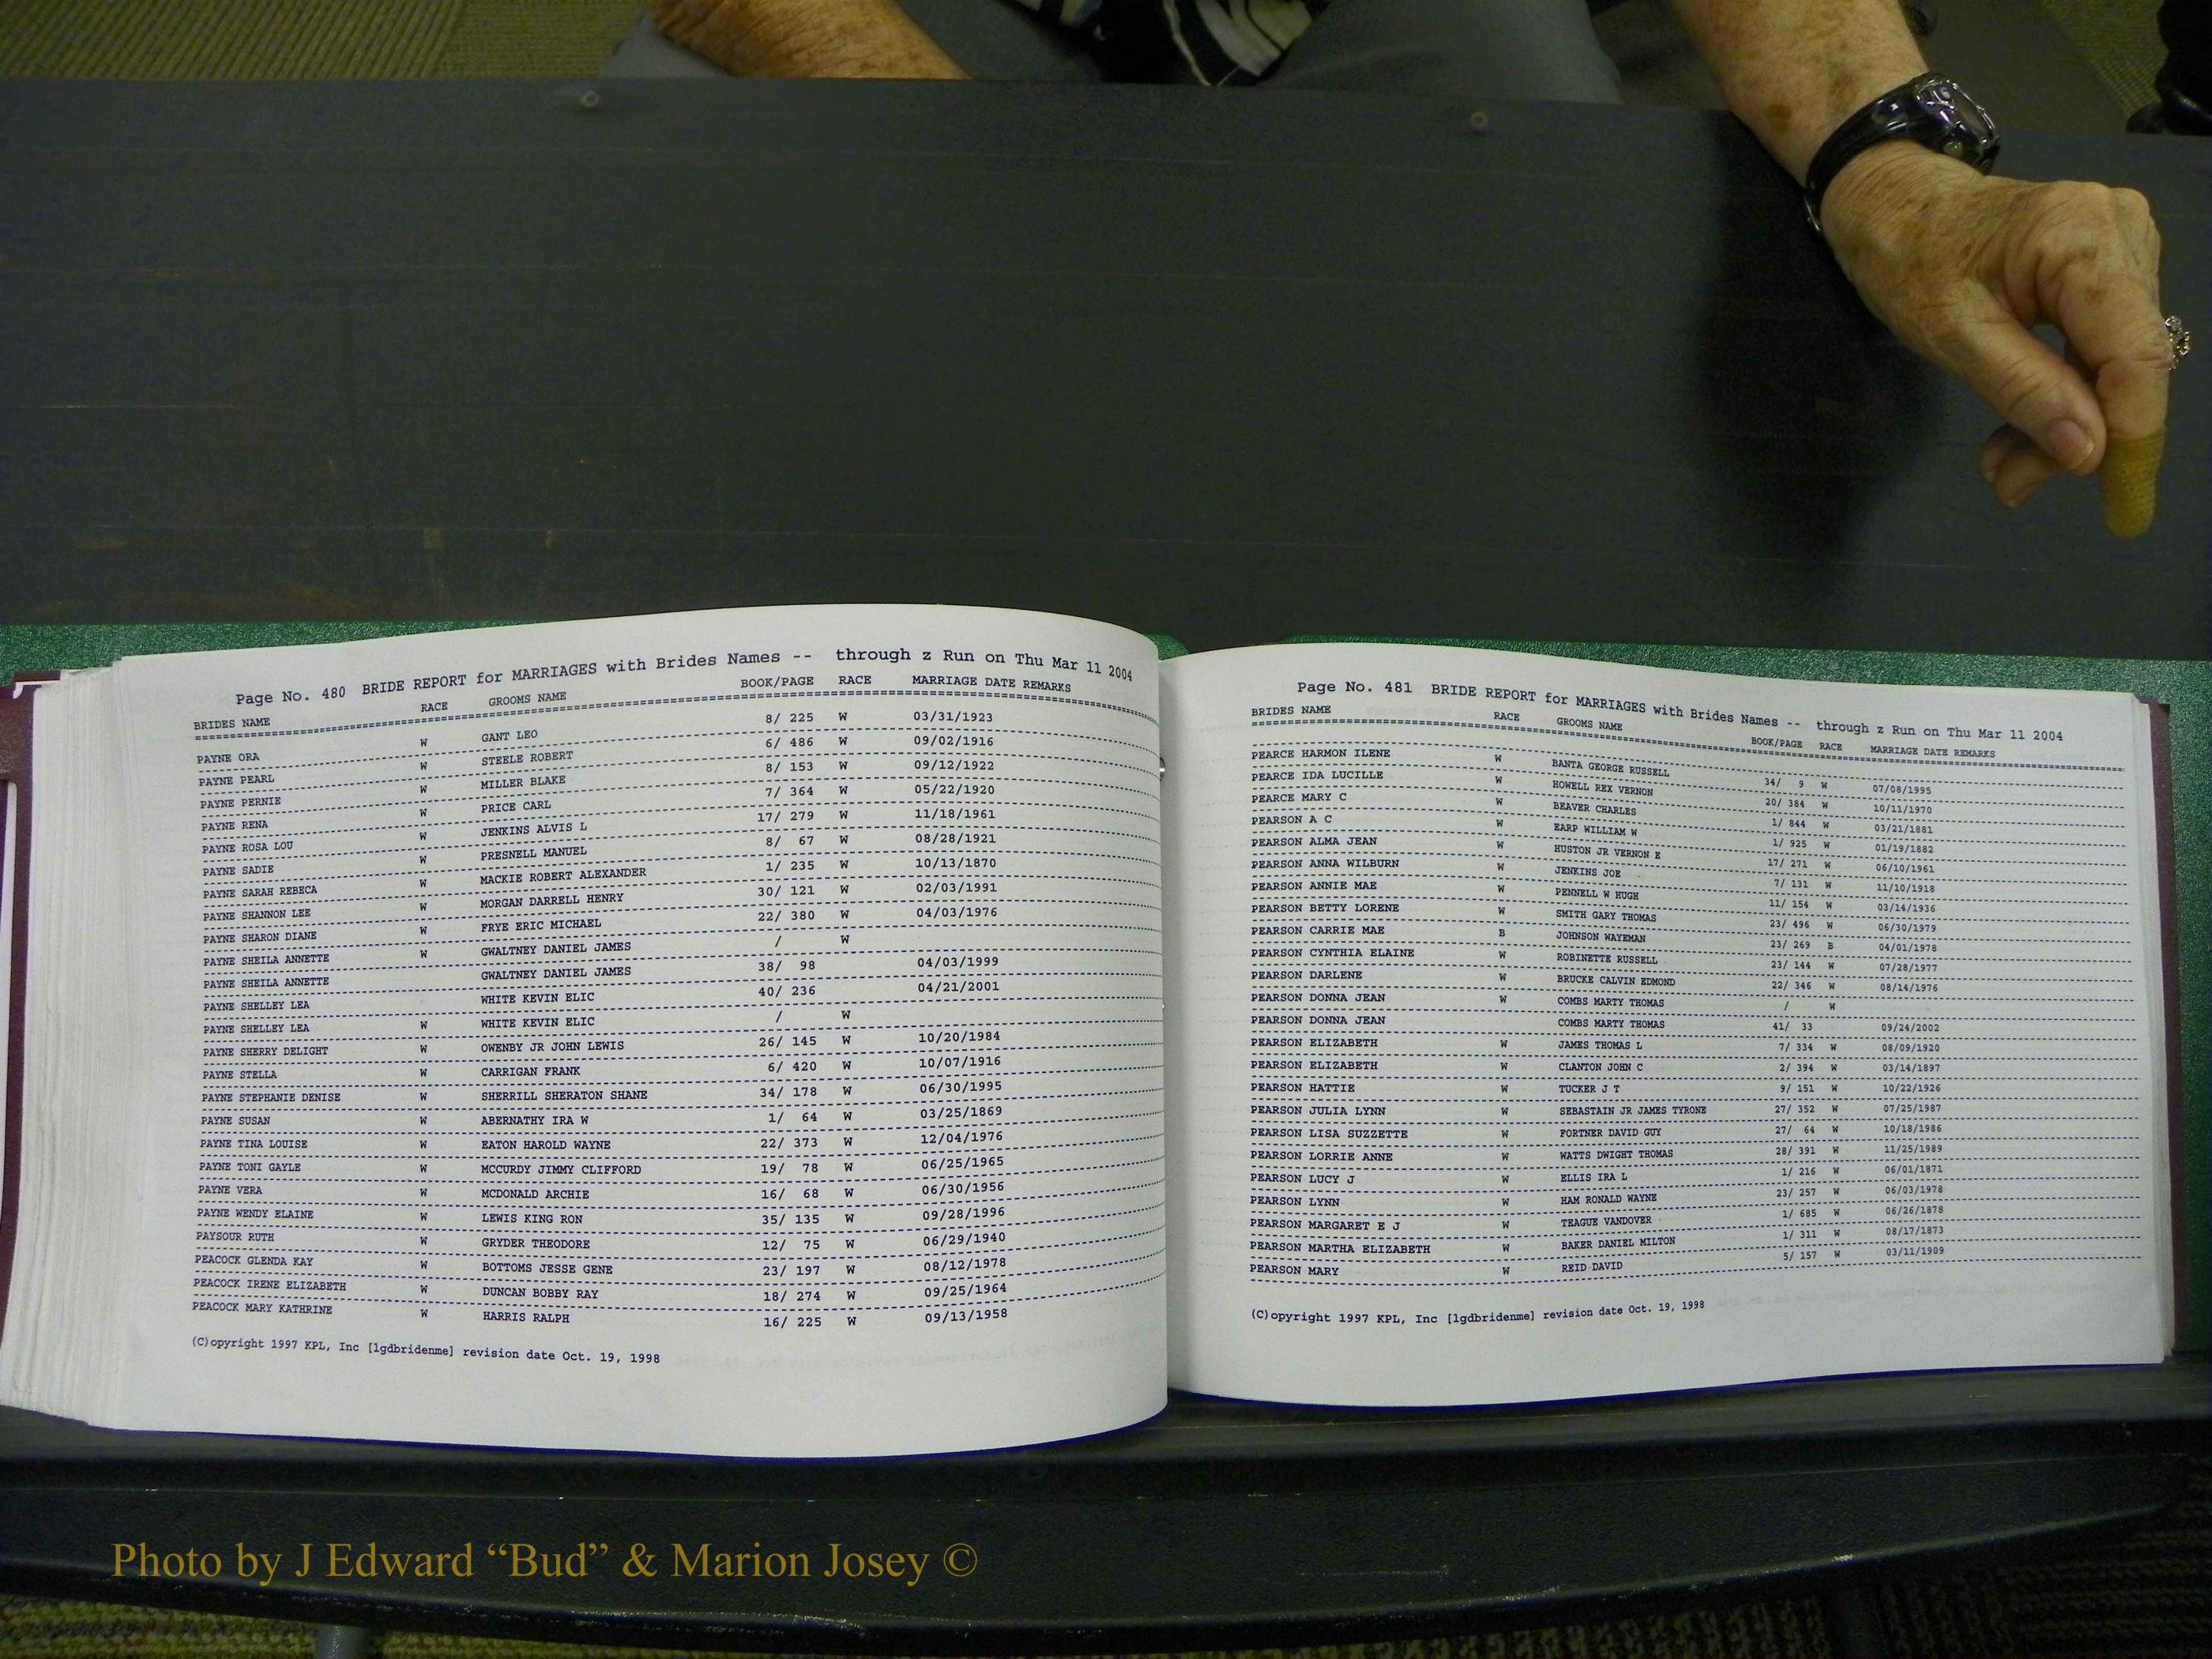 Page No. 480 BRIDE REPORT for MARRIAGES with Brides Names -- through z Run on Thu Mar 11 2004
BRIDES NAME RACE GROOMS NAME BOOK/PAGE RACE MARRIAGE DATE REMARKS
PAYNE ORA W GANT LEO 8/ 225 W 03/31/1923
PAYNE PEARL W STEELE ROBERT 6/ 486 W 09/02/1916
PAYNE PERNIE W MILLER BLAKE 8/ 153 W 09/12/1922
PAYNE RENA W PRICE CARL 7/ 364 W 05/22/1920
PAYNE ROSA LOU W JENKINS ALVIS L 17/ 279 W 11/18/1961
PAYNE SADIE W PRESNELL MANUEL 8/ 67 W 08/28/1921
PAYNE SARAH REBECA W MACKIE ROBERT ALEXANDER 1/ 235 W 10/13/1870
PAYNE SHANNON LEE W MORGAN DARRELL HENRY 30/ 121 W 02/03/1991
PAYNE SHARON DIANE W FRYE ERIC MICHAEL 22/ 380 W 04/03/1976
PAYNE SHEILA ANNETTE W GWALTNEY DANIEL JAMES / W
PAYNE SHEILA ANNETTE GWALTNEY DANIEL JAMES 38/ 98 04/03/1999
PAYNE SHELLEY LEA WHITE KEVIN ELIC 40/ 236 04/21/2001
PAYNE SHELLEY LEA W WHITE KEVIN ELIC / W
PAYNE SHERRY DELIGHT W OWENBY JR JOHN LEWIS 26/ 145 W 10/20/1984
PAYNE STELLA W CARRIGAN FRANK 6/ 420 W 10/07/1916
PAYNE STEPHANIE DENISE W SHERRILL SHERATON SHANE 34/ 178 W 06/30/1995
PAYNE SUSAN W ABERNATHY IRA W 1/ 64 W 03/25/1869
PAYNE TINA LOUISE W EATON HAROLD WAYNE 22/ 373 W 12/04/1976
PAYNE TONI GAYLE W MCCURDY JIMMY CLIFFORD 19/ 78 W 06/25/1965
PAYNE VERA W MCDONALD ARCHIE 16/ 68 W 06/30/1956
PAYNE WENDY ELAINE W LEWIS KING RON 35/ 135 W 09/28/1996
PAYSOUR RUTH W GRYDER THEODORE 12/ 75 W 06/29/1940
PEACOCK GLENDA KAY W BOTTOMS JESSE GENE 23/ 197 W 08/12/1978
PEACOCK IRENE ELIZABETH W DUNCAN BOBBY RAY 18/ 274 W 09/25/1964
PEACOCK MARY KATHRINE W HARRIS RALPH 16/ 225 W 09/13/1958
(C)opyright 1997 KPL, Inc [lgdbridenme] revision date Oct. 19, 1998
Page No. 481 BRIDE REPORT for MARRIAGES with Brides Names -- through z Run on Thu Mar 11 2004
BRIDES NAME RACE GROOMS NAME BOOK/PAGE RACE MARRIAGE DATE REMARKS
PEARCE HARMON ILENE W BANTA GEORGE RUSSELL 34/ 9 W 07/08/1995
PEARCE IDA LUCILLE W HOWELL REX VERNON 20/ 384 W 10/11/1970
PEARCE MARY C W BEAVER CHARLES 1/ 844 W 03/21/1881
PEARSON A C W EARP WILLIAM W 1/ 925 W 01/19/1882
PEARSON ALMA JEAN W HUSTON JR VERNON E 17/ 271 W 06/10/1961
PEARSON ANNA WILBURN W JENKINS JOE 7/ 131 W 11/10/1918
PEARSON ANNIE MAE W PENNELL W HUGH 11/ 154 W 03/14/1936
PEARSON BETTY LORENE W SMITH GARY THOMAS 23/ 496 W 06/30/1979
PEARSON CARRIE MAE B JOHNSON WAYEMAN 23/ 269 B 04/01/1978
PEARSON CYNTHIA ELAINE W ROBINETTE RUSSELL 23/ 144 W 07/28/1977
PEARSON DARLENE W BRUCKE CALVIN EDMOND 22/ 346 W 08/14/1976
PEARSON DONNA JEAN W COMBS MARTY THOMAS / W
PEARSON DONNA JEAN COMBS MARTY THOMAS 41/ 33 09/24/2002
PEARSON ELIZABETH W JAMES THOMAS L 7/ 334 W 08/09/1920
PEARSON ELIZABETH W CLANTON JOHN C 2/ 394 W 03/14/1897
PEARSON HATTIE W TUCKER J T 9/ 151 W 10/22/1926
PEARSON JULIA LYNN W SEBASTAIN JR JAMES TYRONE 27/ 352 W 07/25/1987
PEARSON LISA SUZZETTE W FORTNER DAVID GUY 27/ 64 W 10/18/1986
PEARSON LORRIE ANNE W WATTS DWIGHT THOMAS 28/ 391 W 11/25/1989
PEARSON LUCY J W ELLIS IRA L 1/ 216 W 06/01/1871
PEARSON LYNN W HAM RONALD WAYNE 23/ 257 W 06/03/1978
PEARSON MARGARET E J W TEAGUE VANDOVER 1/ 685 W 06/26/1878
PEARSON MARTHA ELIZABETH W BAKER DANIEL MILTON 1/ 311 W 08/17/1873
PEARSON MARY W REID DAVID 5/ 157 W 03/11/1909
(C)opyright 1997 KPL, Inc [lgdbridenme] revision date Oct. 19, 1998
Photo by J Edward “Bud” & Marion Josey ©